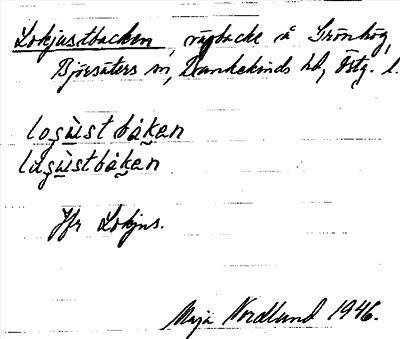 Lokjustbacken, vägbacke å Grönhög,
Björsäters sn, Bankekinds hd, Östg. l.
logùstbàken
lugùstbàken
Jfr Lokjus.
Maja Nordlund 1946.